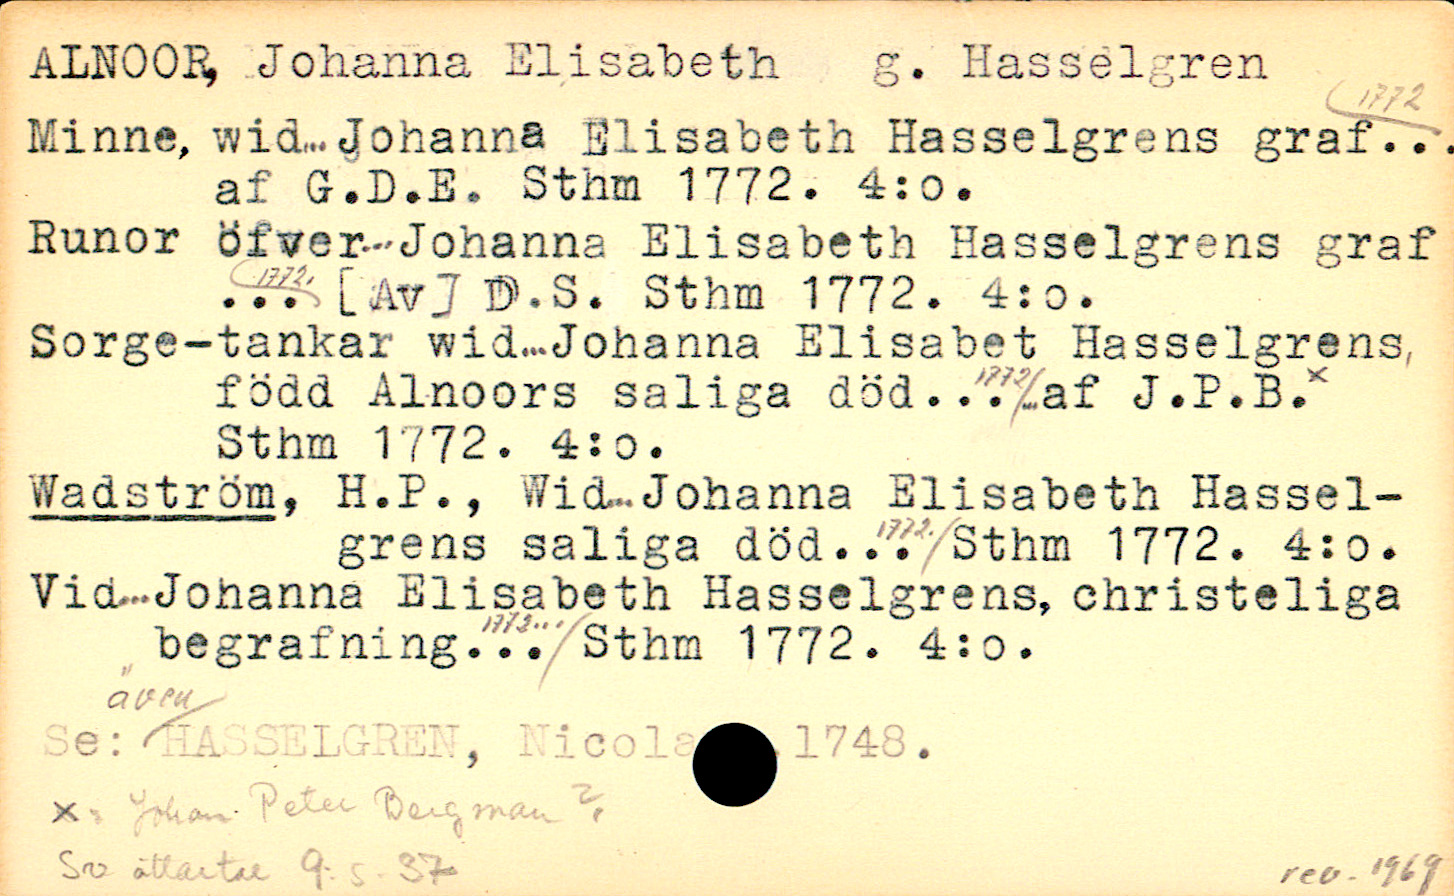 ALNOOR, Johanna Elisabeth g. Hasselgren
1772
Minne, wid...Johanna Elisabeth Hasselgrens graf...
af G.D.E. Sthm 1772. 4:o.
Runor öfver...Johanna Elisabeth Hasselgrens graf
1772.
... [Av] D.S. Sthm 1772. 4:o.
Sorge-tankar wid...Johanna Elisabet Hasselgrens,
född Alnoors saliga död... 1772/...af J.P.B.x
Sthm 1772. 4:o.
Wadström, H.P., Wid...Johanna Elisabeth Hassel-
grens saliga död... 1772./ Sthm 1772. 4:o.
Vid...Johanna Elisabeth Hasselgrens, christeliga
begrafning... 1772.../ Sthm 1772. 4:o.
även
Se: HASSELGREN, Nicola .1748.
x = Johan Peter Bergman?
Sv ättartal 9. s. 37
rev. 1969